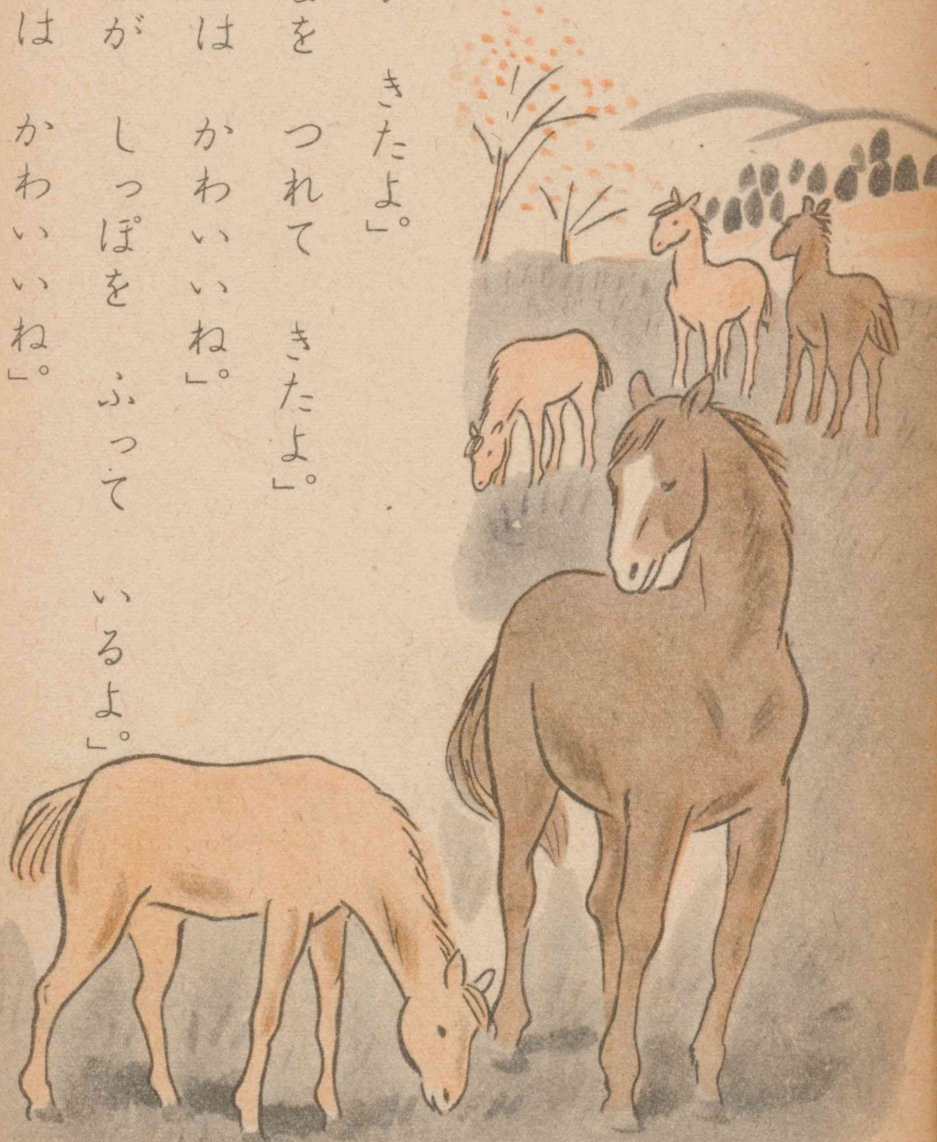 きたよ。」
を つれて きたよ。」
は かわいいね。」
が しっぽを ふって いるよ。」
は かわいいね。」